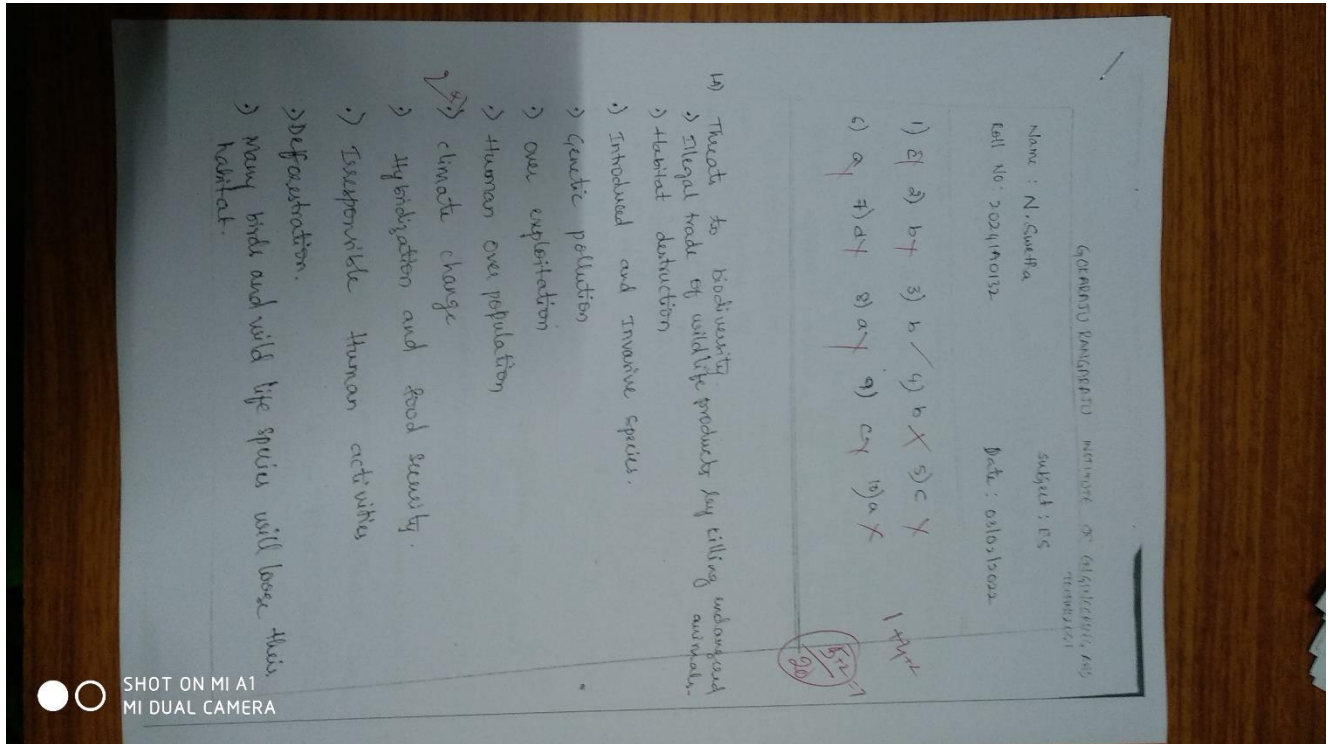 GOKARAJU RANGARAJU INSTITUTE OF ENGINEERING AND
TECHNOLOGY
Name : N. Swetha
Subject : ES
Roll No: 20241A0132
Date : 03/02/2022
1) c 2) b 3) b 4) b 5) c
6) a 7) d 8) a 9) c 10) a
20
4) Threats to biodiversity
Illegal trade of wildlife products by killing endangered
animals.
Habitat destruction
Introduced and Invasive species.
Genetic pollution
over exploitation
Human over population
climate change
Hybridization and food security.
Irresponsible Human activities
Defforestration.
Many birds and wild life species will loose their
habitat.
SHOT ON MI A1
MI DUAL CAMERA